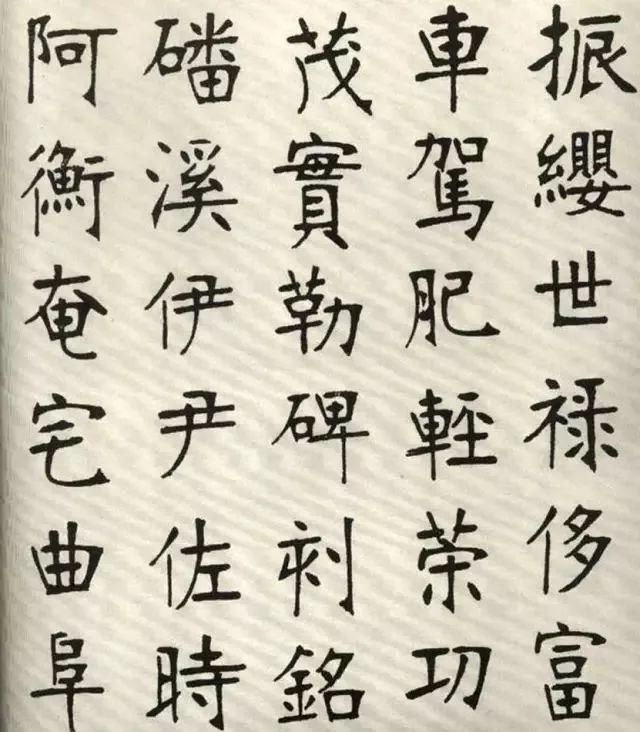 振纓世禄侈富
車駕肥輕策功
茂實勒碑刻銘
磻溪伊尹佐時
阿衡奄宅曲阜